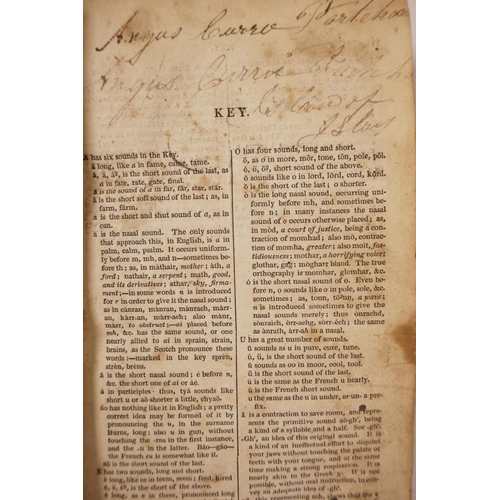 Angus Currie Portchar
Angus Currie
Island of
Islay
KEY.
A has six sounds in the Key.
ā long, like a in fame, came, tame.
is the short sound of the last, as
a in fate, rate, gate, final.
is the sound of a in far, fâr, star, stâr.
is the short soft sound of the last; as, in
farm, fârm.
is the short and shut sound of a, as in
can.
is the nasal sound. The only sounds
that approach this, in English, is a in
palm, calm, psalm. It occurs uniform-
ly before m, mh, and n—sometimes be-
fore th; as, in màthair, mother; àth, a
ford; nathair, a serpent; math, good,
and its derivatives; athar, sky, firma-
ment;—in some words n is introduced
for r in order to give it the nasal sound;
as in cànran, mànran, màntach, màrr-
an, kàrr-an, màrr-ach; also mànr,
màrr, to obstruct;—ai placed before
mh, &c. has the same sound, or one
nearly allied to ai in sprain, strain,
brains, as the Scotch pronounce these
words;—marked in the key sprèn,
strèn, brèns.
is the short nasal sound; é before n,
&c. the short one of ai or áé.
in participles- thus, tyà sounds like
short u or aò shorter a little, chyaò.
ao has nothing like it in English; a pretty
correct idea may be formed of it by
pronouncing the u, in the surname
Burns, long; also u in gun, without
touching the -rns in the first instance,
and the -n in the latter. Bâo-gâo—
the French eu is somewhat like it.
aö is the short sound of the last.
E has two sounds, long and short.
ē long, like ee in teem, seem; feed, hired
as e in these, pronounced long
O has four sounds, long and short.
ō, as o in more, mōr, tone, tōn, pole, pōl.
short sound of the above.
ô sounds like o in lord, lôrd, cord, kôrd.
is the short sound of the last; o shorter.
ò is the long nasal sound, occurring uni-
formly before mh, and sometimes be-
fore n; in many instances the nasal
sound of o occurs otherwise placed; as,
in mòd, a court of justice, being a con-
traction of momhad; also mò, contrac-
tion of momha, greater; also moit, fas-
tidiousness; mothar, a horrifying voice;
glothar, mòghar bland. The true
orthography is momhar, glomhar, &c.
ó is the short nasal sound of O. Even be-
fore n, o sounds like o in pole, sole, &c.
sometimes; as, tonn, a wave;
n is introduced sometimes to give the
nasal sounds merely; thus onrachd,
sònraich, òrr-achg, sòrr-ch; the same
as ànrath, àrr-ah in a nasal.
U has a great number of sounds.
ū sounds as u in pure, cure, tune.
is the short sound of the last.
ù sounds as oo in moor, cool, tool.
ú is the short sound of the last.
is the same as the French u nearly.
is the French short sound.
is the same as the u in under, or un- a pre-
fix.
is a contraction to save room, and repre-
sents the primitive sound aö-gh', being
a kind of a syllable and a half. See -gh'.
-Gh', an idea of this original sound. It is
a kind of an ineffectual effort to dispoint
your jaws without touching the palate or
teeth with your tongue, and at the same
time making a strong respiration. It is
nearly akin to the Greek χ. If is not
possible, without oral instruction, to con-
vey an adequate idea of gh'.